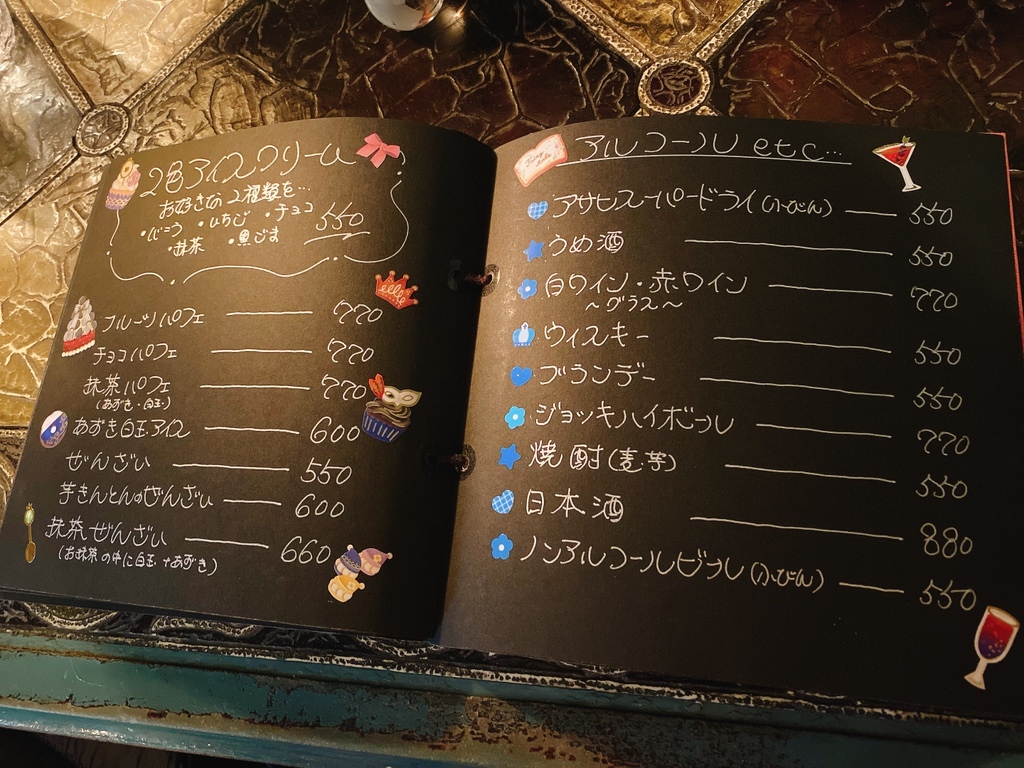 2色アイスクリーム
お好きな2種類を…
・バニラ ・いちご ・チョコ
・抹茶 ・黒ごま
550
フルーツパフェ 770
チョコパフェ 770
抹茶パフェ 770
(あずき・白玉)
あずき白玉アイス 600
ぜんざい 550
芋きんとんのぜんざい 600
抹茶ぜんざい 660
(お抹茶の中に白玉+あずき)
アルコールetc…
アサヒスーパードライ(小びん) 550
うめ酒 550
白ワイン・赤ワイン 770
~グラス~
ウィスキー 550
ブランデー 550
ジョッキハイボール 770
焼酎(麦.芋) 550
日本酒 880
ノンアルコールビール(小びん) 550